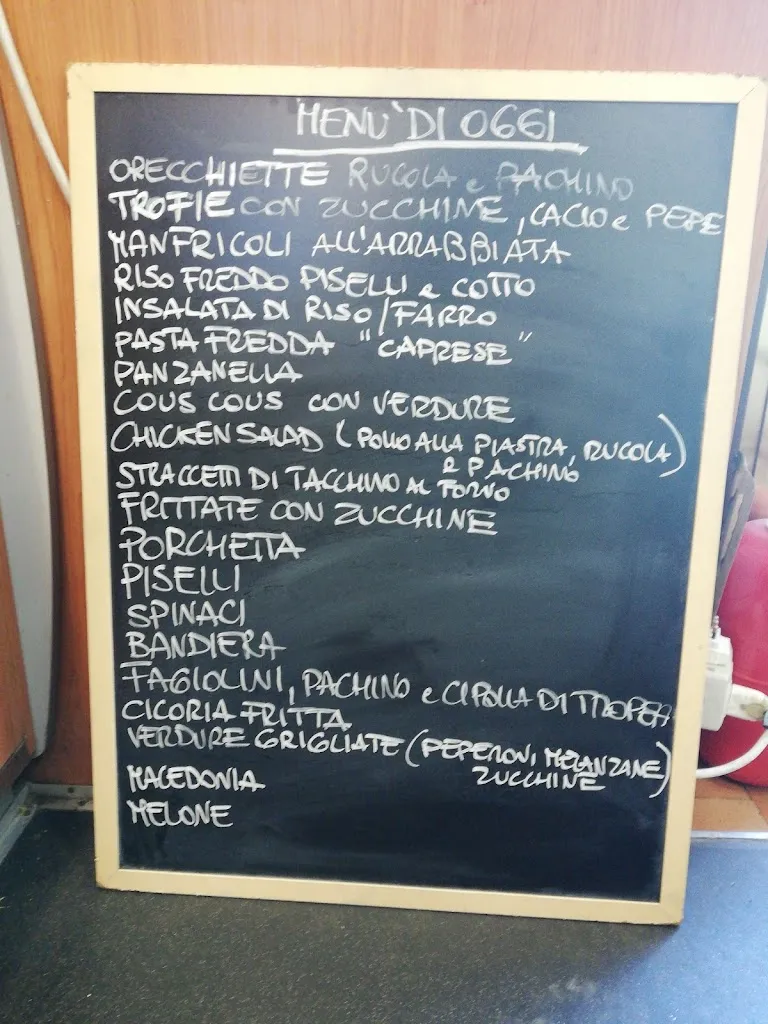 MENU' DI OGGI
ORECCHIETTE RUCOLA e PACHINO
TROFIE CON ZUCCHINE, CACIO e PEPE
MANFRICOLI ALL'ARRABBIATA
RISO FREDDO PISELLI e COTTO
INSALATA DI RISO/FARRO
PASTA FREDDA "CAPRESE"
PANZANELLA
COUS COUS CON VERDURE
CHICKEN SALAD (POLLO ALLA PIASTRA, RUCOLA)
e PACHINO
STRACCETTI DI TACCHINO AL FORNO
FRITTATE CON ZUCCHINE
PORCHETTA
PISELLI
SPINACI
BANDIERA
FAGIOLINI, PACHINO e CIPOLLA DI TROPEA
CICORIA FRITTA
VERDURE GRIGLIATE (PEPERONI, MELANZANE)
ZUCCHINE
MACEDONIA
MELONE